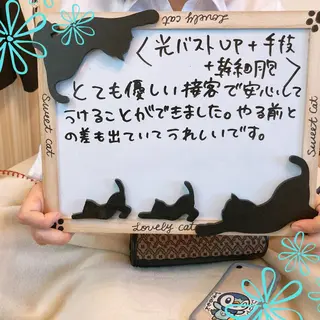 Lovely cat
〈光バストUP+手技
+幹細胞〉
とても優しい接客で安心して
うけることができました。やる前と
の差も出ていてうれしいです。
Sweet cat
Sweet cat
Lovely cat